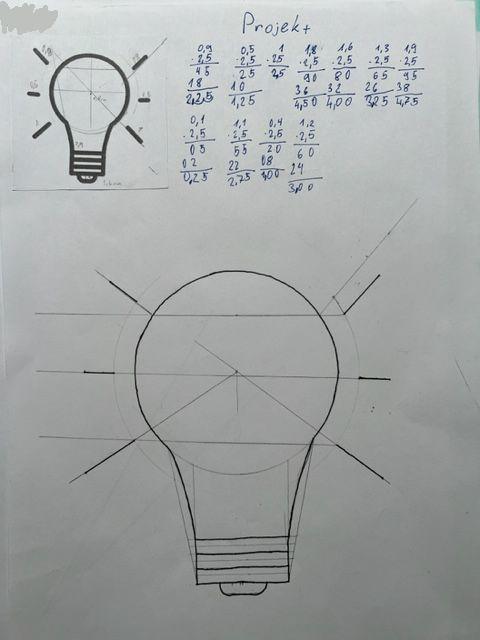 Projekt
0,9 0,5 1 1,8 1,6 1,3 1,9
·2,5 ·2,5 ·2,5 ·2,5 ·2,5 ·2,5 ·2,5
45 25 2,5 90 80 65 95
18 10 36 32 26 38
2,25 1,25 4,50 4,00 3,25 4,75
0,1 1,1 0,4 1,2
·2,5 ·2,5 ·2,5 ·2,5
05 55 20 60
02 22 08 24
0,25 2,75 1,00 3,00